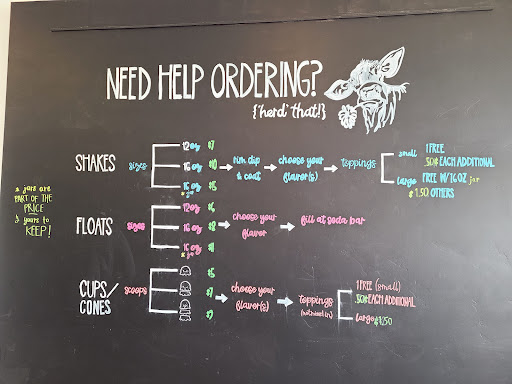 NEED HELP ORDERING?
{'herd' that!}
SHAKES sizes
12oz $7
16oz $10
16oz jar
rim dip & coat
choose your flavor(s)
toppings
small
1 FREE
50¢ EACH ADDITIONAL
large
FREE W/16 OZ jar
$1.50 OTHERS
jars are
PART OF THE
PRICE
yours to
KEEP!
FLOATS sizes
12oz $6
16oz $8
16oz jar
choose your flavor
fill at soda bar
CUPS/
CONES
scoops
$5
$7
choose your flavor(s)
toppings
1 FREE (small)
50¢ EACH ADDITIONAL
large $1.50